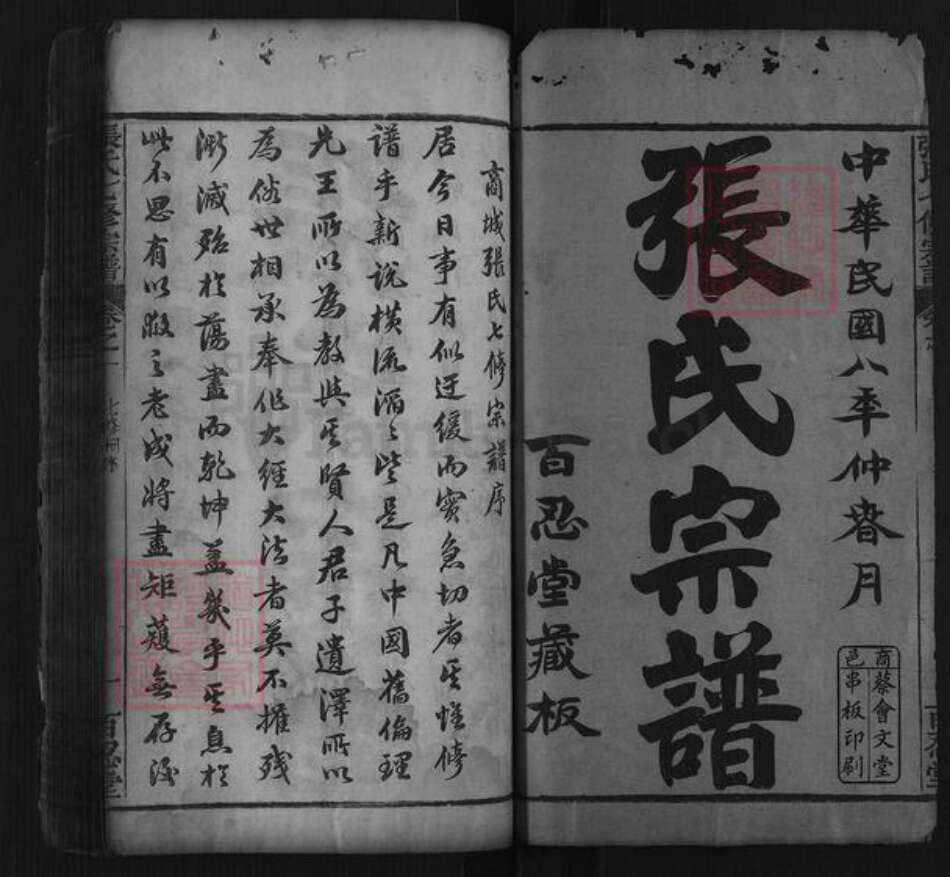 中華民國八年仲春月
張氏宗譜
百忍堂藏板
商邑蔡會文堂串板印刷
商城張氏七修宗譜序
居今日事有似迂緩而實急切者其惟修
譜乎新說橫流滔滔皆是凡中國舊倫理
先王所以為教與其賢人君子遺澤所以
為俗世相承奉作大經大法者莫不摧殘
澌滅殆於蕩盡而乾坤蓋幾乎其息於
此不思有以救之老成將盡矩矱無存後
張氏七修宗譜
卷之一
百忍堂